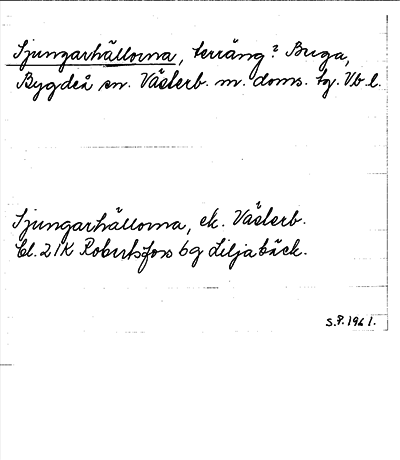 Sjungarhällorna, terräng? Buga,
Bygdeå sn. Västerb. m. doms. tg. Vb l.
Sjungarhällorna, ek. Västerb.
bl. 21K Robertsfors bg Liljabäck.
S.P. 1961.